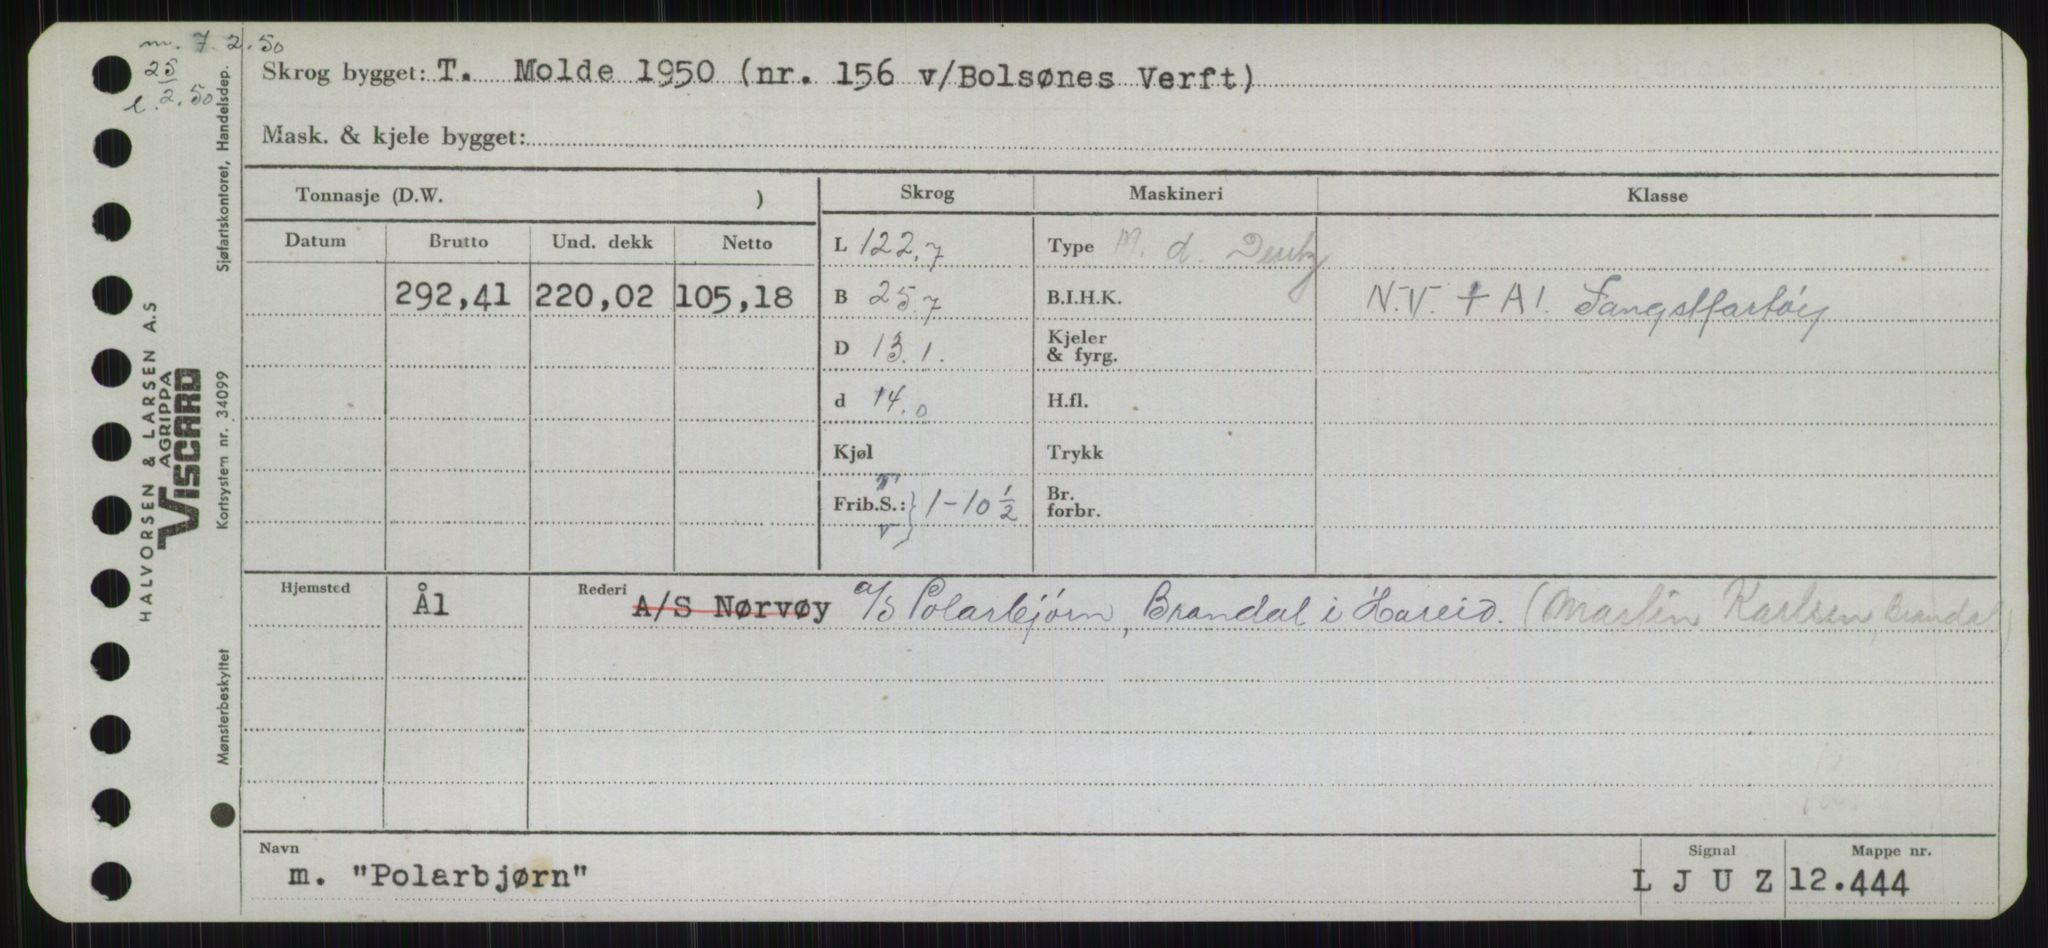 m. 7.2.50
25
l. 2.50
Skrog bygget: T. Molde 1950 (nr. 156 v/Bolsønes Verft)
Mask. & kjele bygget:
Sjøfartskontoret, Handelsdep.
HALVORSEN & LARSEN A.S
AGRIPPA
VISCARD
Kortsystem nr. 34099
Mønsterbeskyttet
Tonnasje (D.W. )
Skrog Maskineri Klasse
Datum Brutto Und. dekk Netto
292,41 220,02 105,18
L 122,7
B 25,7
D 13.1.
d 14.0
Kjøl
T
Frib.S.: } 1-10 1/2
V
Type M. d. Deutz
B.I.H.K.
Kjeler
& fyrg.
H.fl.
Trykk
Br.
forbr.
N.V. + A1. Fangstfartøy
Hjemsted Ål
Rederi A/S Nørvøy A/S Polarbjørn, Brandal i Hareid. (Martin Karlsen, Brandal)
Navn Signal Mappe nr.
m. "Polarbjørn" L J U Z 12.444